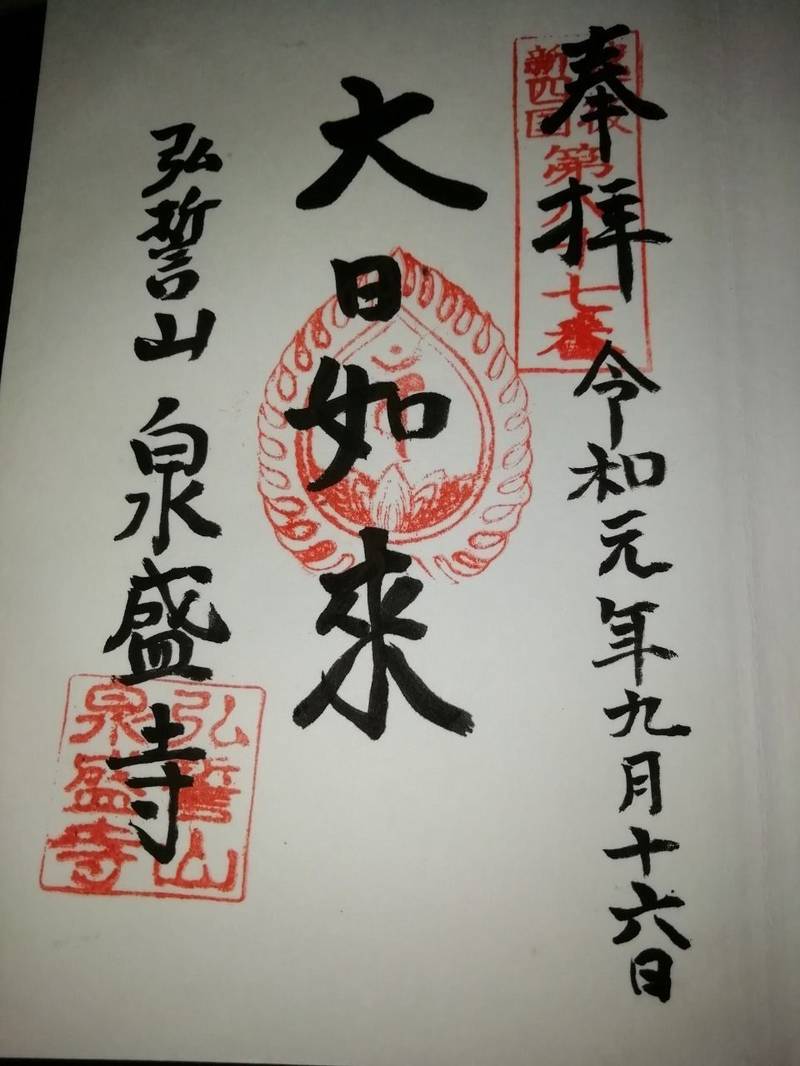 奉拝 令和元年九月十六日
新四国
七番
大日如來
弘誓山 泉盛寺
弘誓山
泉盛寺